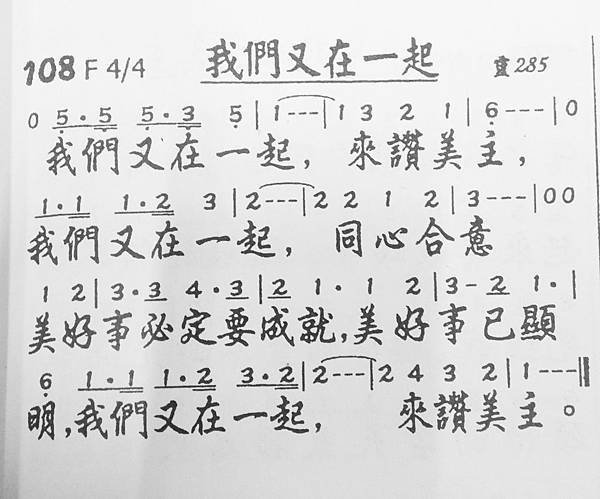 108 F 4/4 我們又在一起 靈285
0 5·5 5·3 5 | 1--- | 1 3 2 1 | 6--- | 0
我們又在一起，來讚美主，
1·1 1·2 3 | 2--- | 2 2 1 2 | 3--- | 0 0
我們又在一起，同心合意
1 2 | 3·3 4·3 | 2 1·1 2 | 3-2 1· |
美好事必定要成就，美好事已顯
6 1·1 1·2 3·2 | 2--- | 2 4 3 2 | 1--- ||
明，我們又在一起，來讚美主。